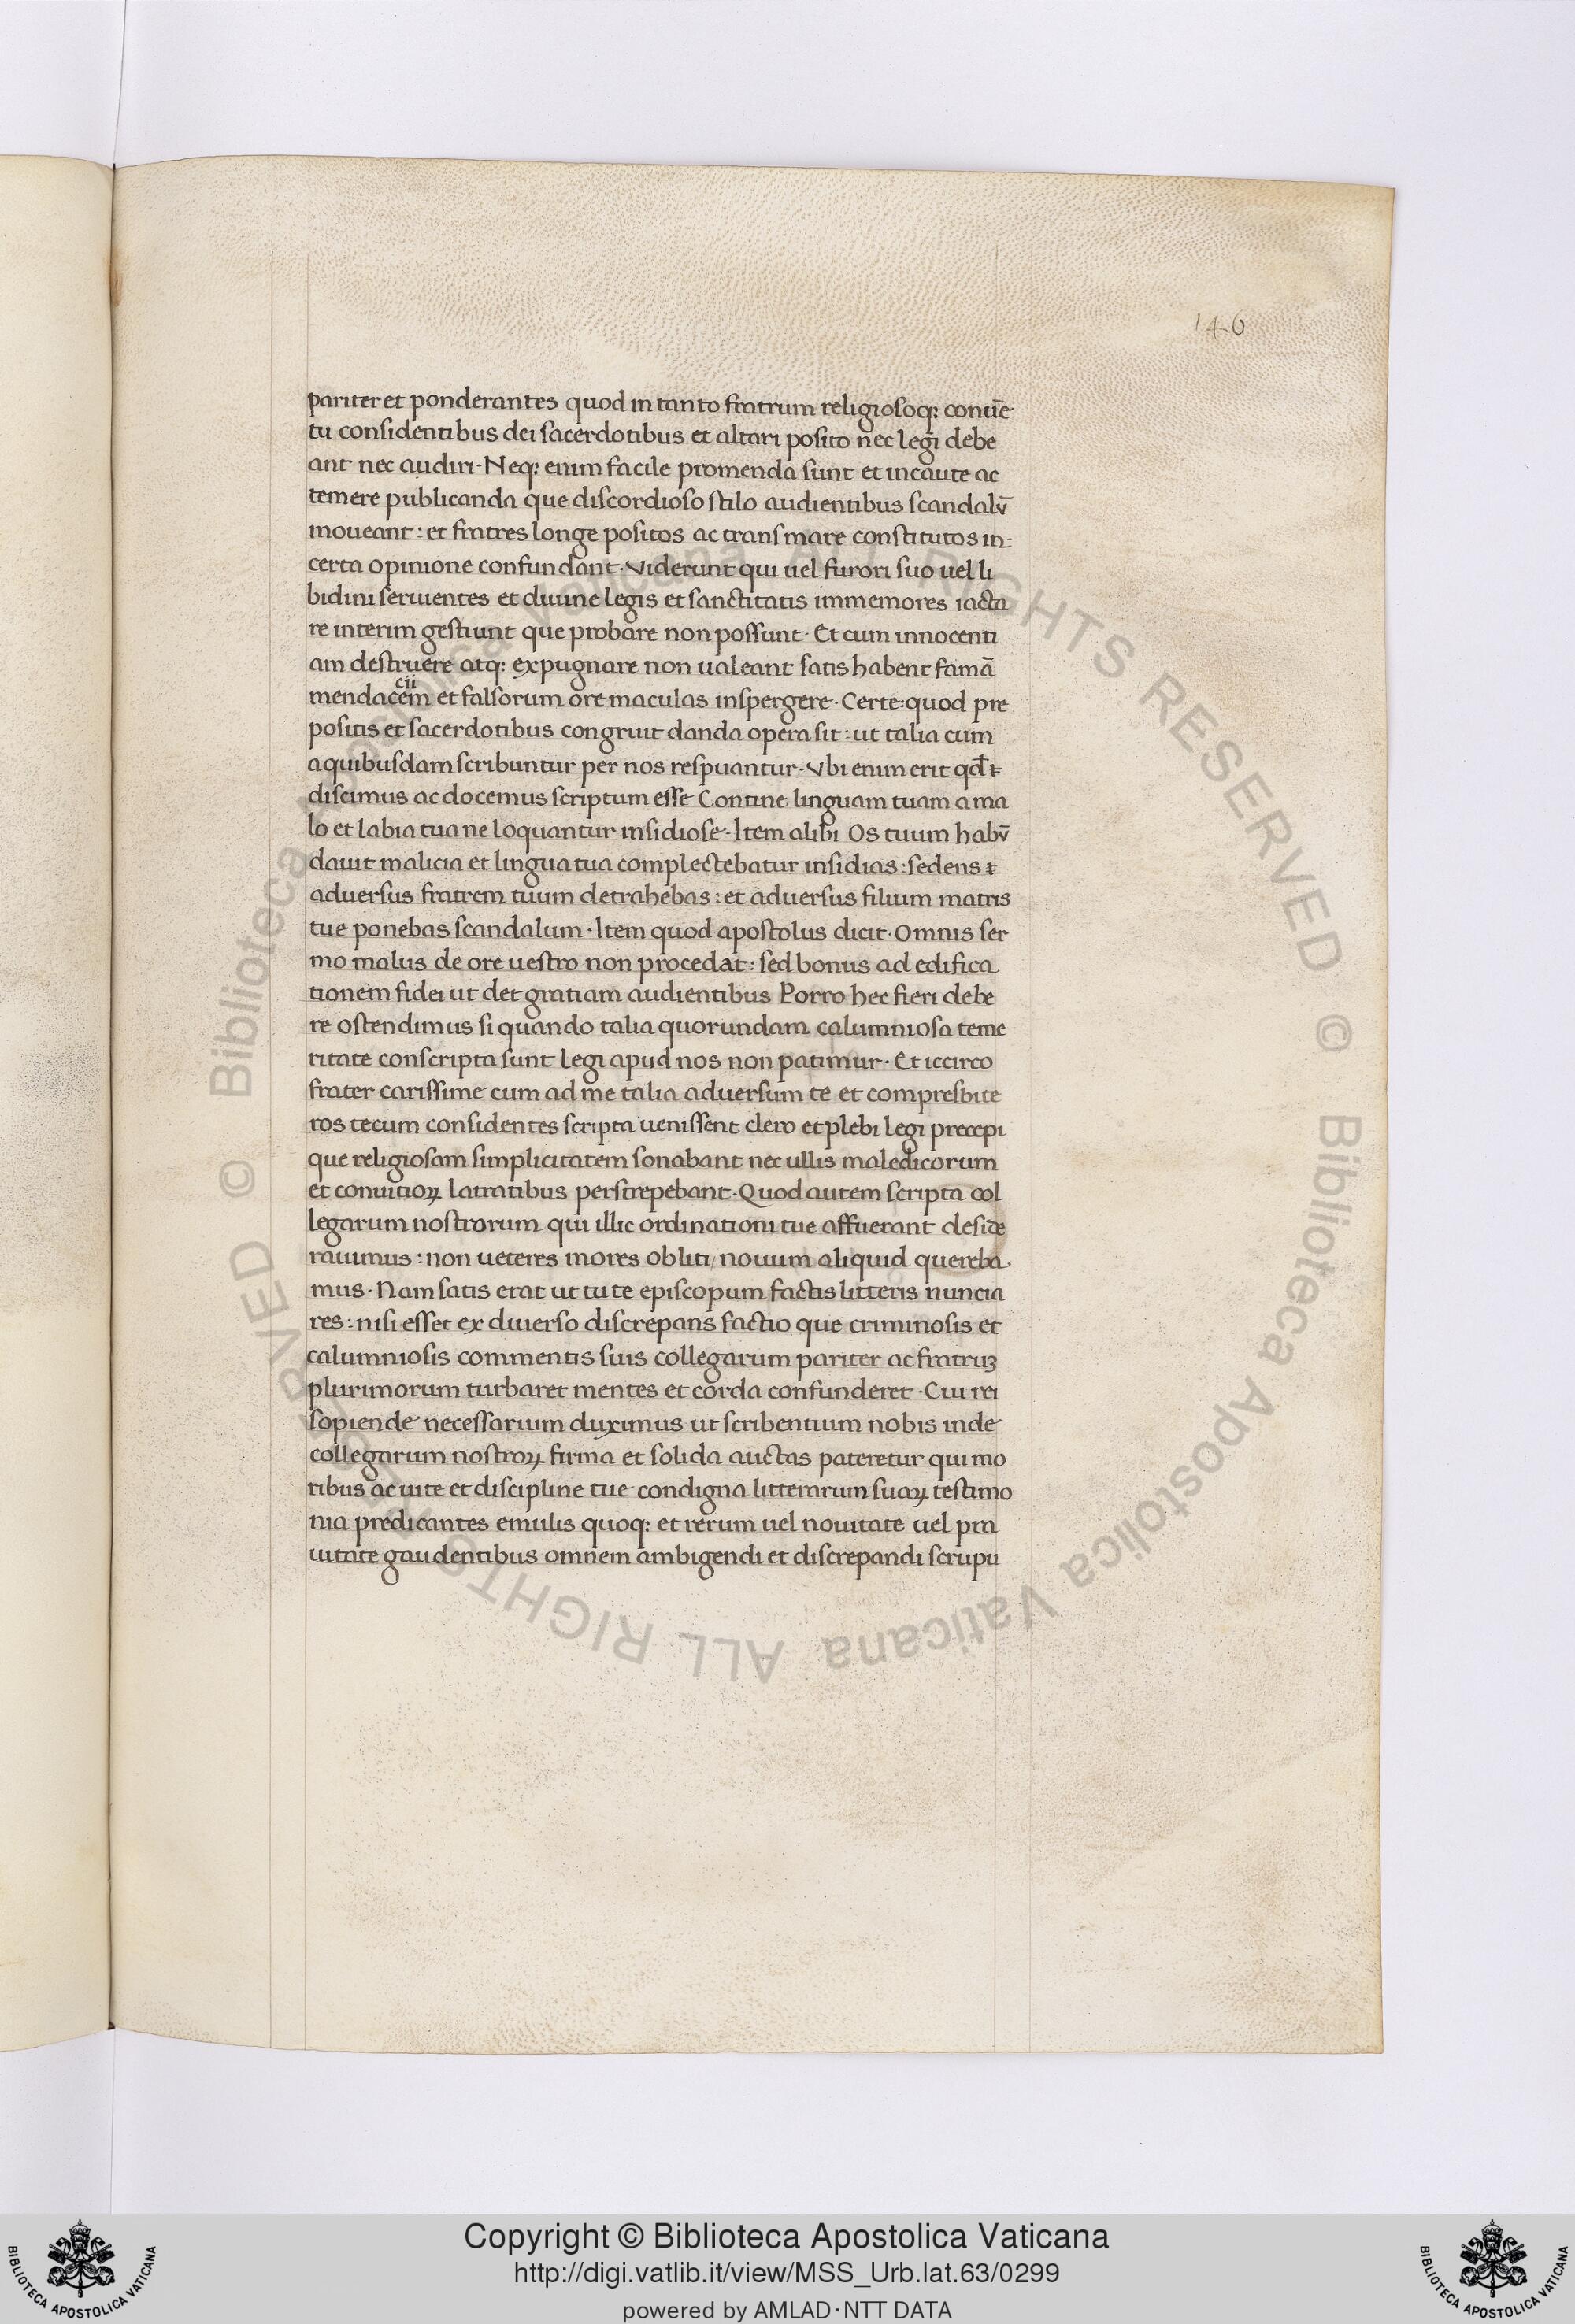 146
pariter et ponderantes quod in tanto fratrum religiosoq: conuē
tu considentibus dei sacerdotibus et altari posito nec legi debe
ant nec audiri · Neq: enim facile promenda sunt et incaute ac
temere publicanda que discordioso stilo audientibus scandalū
moueant : et fratres longe positos ac trans mare constitutos in-
certa opinione confundant · Viderunt qui uel furori suo uel li
bidini seruientes et diuine legis et sanctitatis immemores iacta
re interim gestiunt que probare non possunt · Et cum innocenti
am destruere atq: expugnare non ualeant satis habent famā
cii
mendacem et falsorum ore maculas inspergere · Certe: quod pre
positis et sacerdotibus congruit danda opera sit : ut talia cum
a quibusdam scribuntur per nos respuantur · Vbi enim erit qđ
discimus ac docemus scriptum esse Contine linguam tuam a ma
lo et labia tua ne loquantur insidiose · Item alibi Os tuum habū
dauit malicia et lingua tua complectebatur insidias : sedens
aduersus fratrem tuum detrahebas : et aduersus filium matris
tue ponebas scandalum · Item quod apostolus dicit · Omnis ser
mo malus de ore uestro non procedat : sed bonus ad edifica
tionem fidei ut det gratiam audientibus Porro hec fieri debe
re ostendimus si quando talia quorundam calumniosa teme
ritate conscripta sunt legi apud nos non patimur · Et iccirco
frater carissime cum ad me talia aduersum te et compresbite
ros tecum considentes scripta uenissent clero et plebi legi precepi
que religiosam simplicitatem sonabant nec ullis maledicorum
et conuitioꝝ latratibus perstrepebant · Quod autem scripta col
legarum nostrorum qui illic ordinationi tue affuerant deside
rauimus : non ueteres mores obliti / nouum aliquid quereba
mus · Nam satis erat ut tu te episcopum factis litteris nuncia
res : nisi esset ex diuerso discrepans factio que criminosis et
calumniosis commentis suis collegarum pariter ac fratruꝫ
plurimorum turbaret mentes et corda confunderet · Cui rei
sopiende necessarium duximus ut scribentium nobis inde
collegarum nostroꝝ firma et solida auctas pateretur qui mo
ribus ac uite et discipline tue condigna litterarum suaꝝ testimo
nia predicantes emulis quoq: et rerum uel nouitate uel pra
uitate gaudentibus omnem ambigendi et discrepandi scrupu
© Biblioteca Apostolica Vaticana ALL RIGHTS RESERVED © Biblioteca Apostolica Vaticana ALL RIGHTS RESERVED
Copyright © Biblioteca Apostolica Vaticana
http://digi.vatlib.it/view/MSS_Urb.lat.63/0299
powered by AMLAD·NTT DATA
BIBLIOTECA APOSTOLICA VATICANA
BIBLIOTECA APOSTOLICA VATICANA